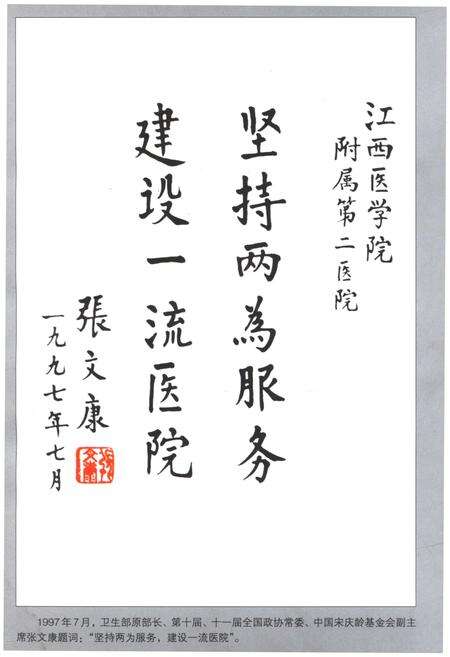 江西医学院
附属第二医院
坚持两為服务
建设一流医院
張文康
一九九七年七月
1997年7月，卫生部原部长、第十届、十一届全国政协常委、中国宋庆龄基金会副主
席张文康题词：“坚持两为服务，建设一流医院”。